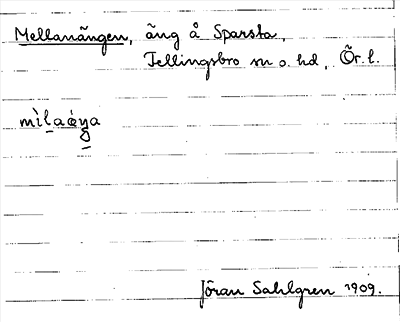 Mellanängen, äng å Sparsta,
Fellingsbro sn o. hd, Ör. l.
Jöran Sahlgren 1909.